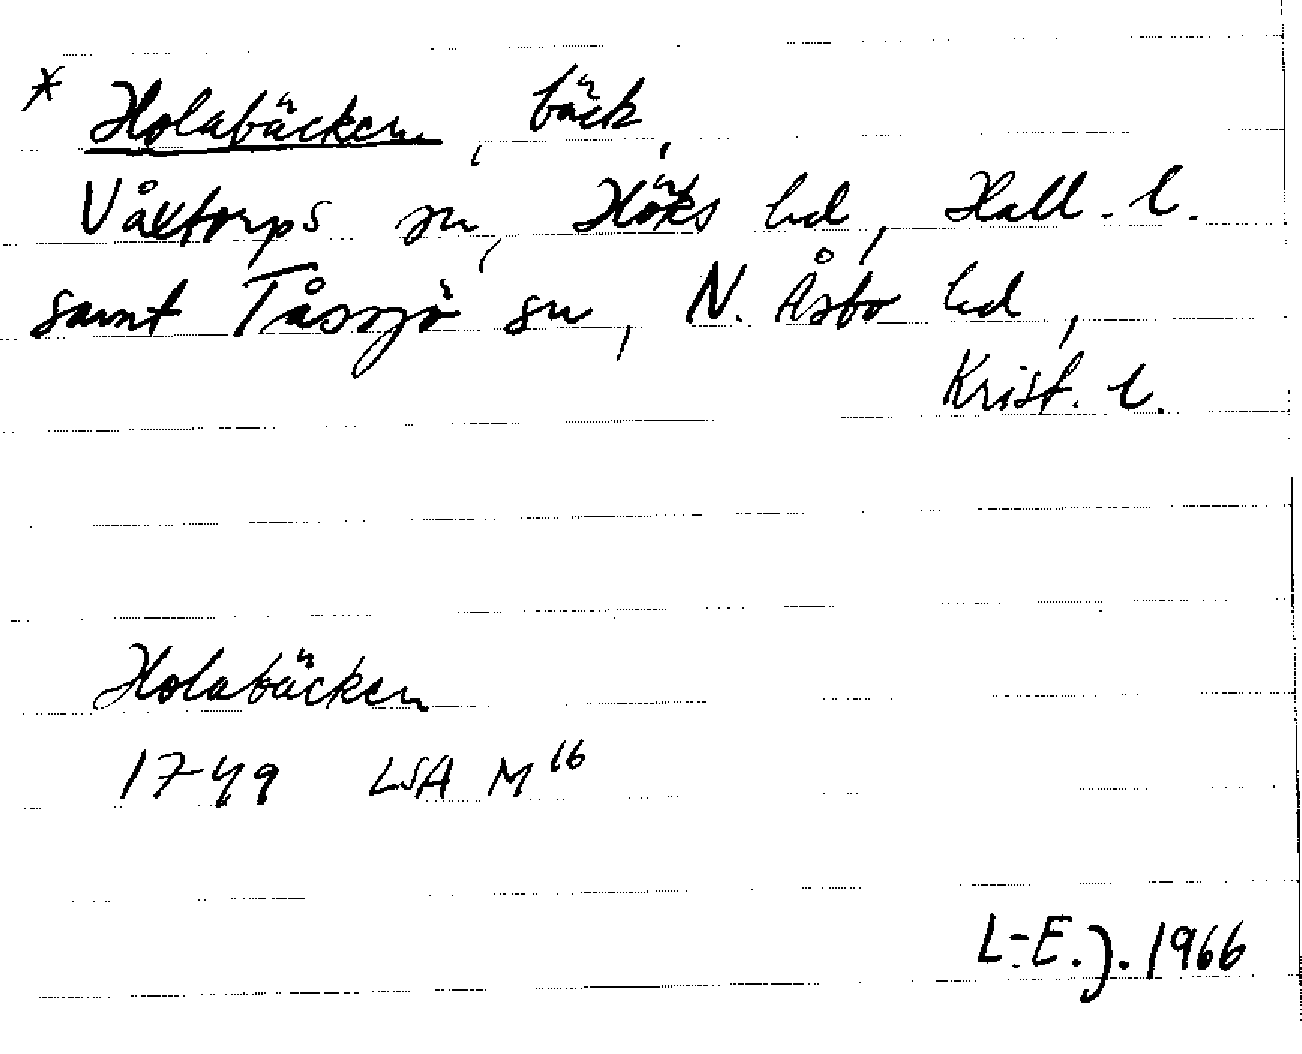 * Holabäcken, bäck,
Våxtorps sn, Höks hd, Hall. l.
samt Tåssjö sn, N. Åsbo hd,
Krist. l.
Holabäcken
1749 LSA M16
L-E. J. 1966